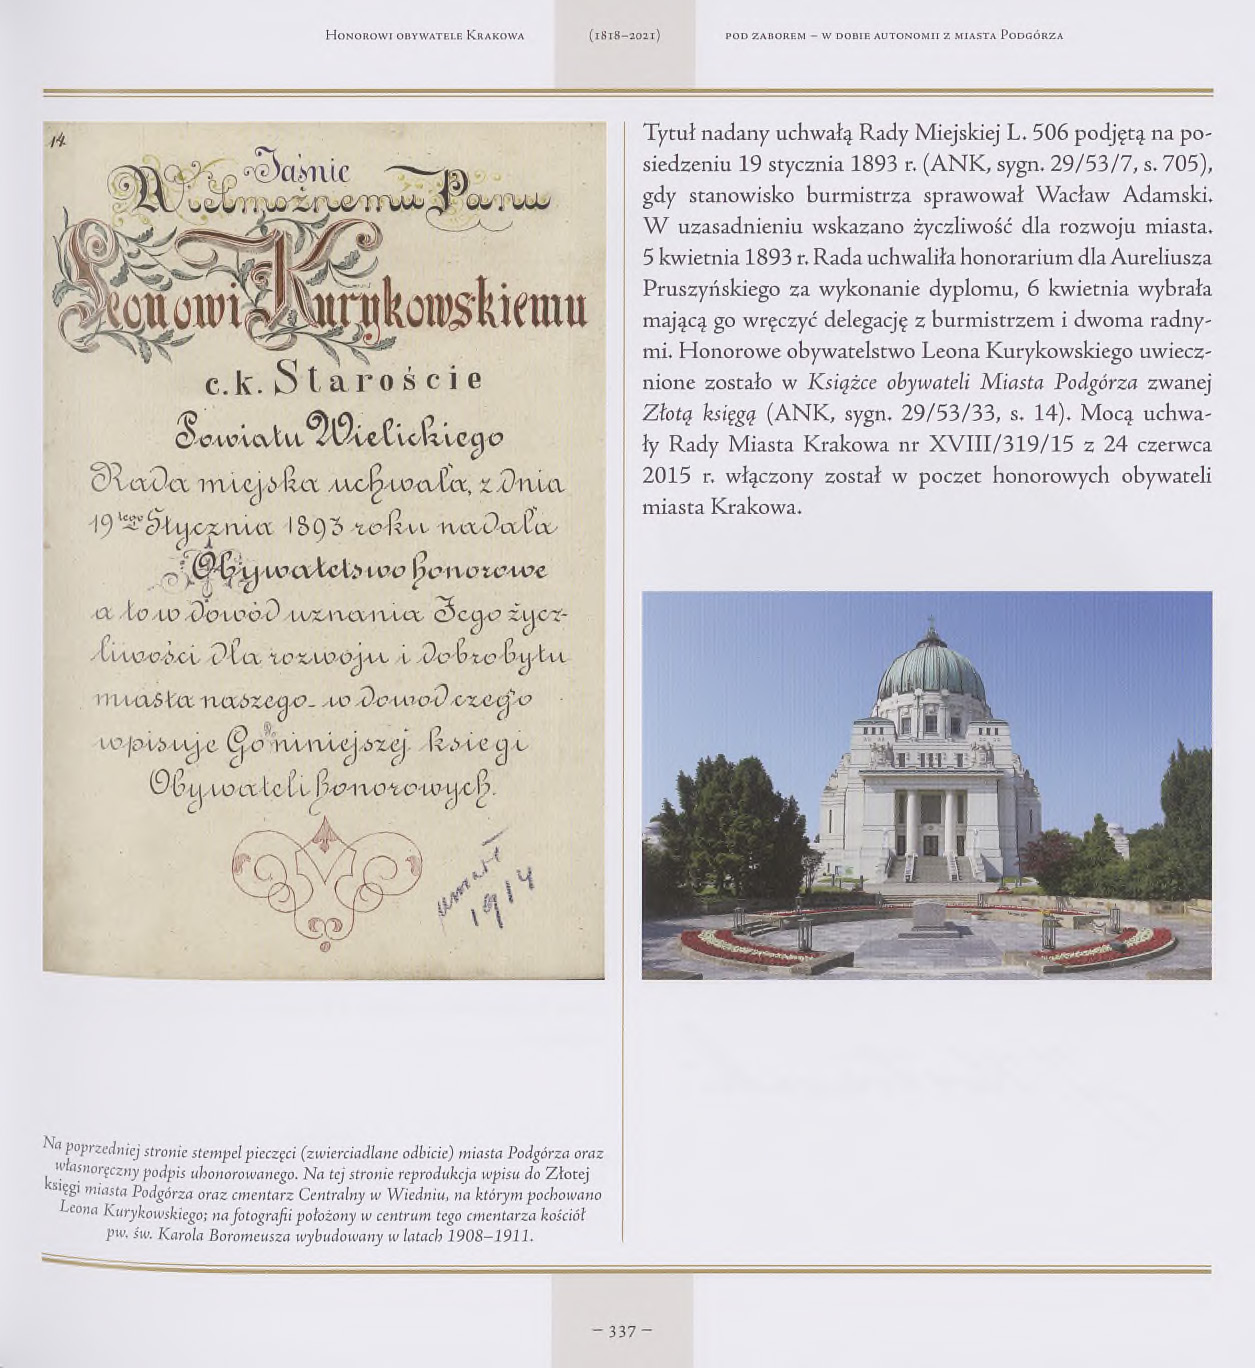 Honorowi obywatele Krakowa (1818–2021) pod zaborem – w dobie autonomii z miasta Podgórza
14
Jaśnie
Wielmożnemu Panu
Leonowi Kurykowskiemu
c.k. Staroście
Powiatu Wielickiego
Rada miejska uchwałą, z dnia
19tego Stycznia 1893 roku nadała
Obywatelstwo honorowe
a to w dowód uznania Jego życz-
liwości dla rozwoju i dobrobytu
miasta naszego – w dowód czego
wpisuje Go niniejszej księgi
Obywateli honorowych.
umarł
1914
Tytuł nadany uchwałą Rady Miejskiej L. 506 podjętą na po-
siedzeniu 19 stycznia 1893 r. (ANK, sygn. 29/53/7, s. 705),
gdy stanowisko burmistrza sprawował Wacław Adamski.
W uzasadnieniu wskazano życzliwość dla rozwoju miasta.
5 kwietnia 1893 r. Rada uchwaliła honorarium dla Aureliusza
Pruszyńskiego za wykonanie dyplomu, 6 kwietnia wybrała
mającą go wręczyć delegację z burmistrzem i dwoma radny-
mi. Honorowe obywatelstwo Leona Kurykowskiego uwiecz-
nione zostało w Książce obywateli Miasta Podgórza zwanej
Złotą księgą (ANK, sygn. 29/53/33, s. 14). Mocą uchwa-
ły Rady Miasta Krakowa nr XVIII/319/15 z 24 czerwca
2015 r. włączony został w poczet honorowych obywateli
miasta Krakowa.
Na poprzedniej stronie stempel pieczęci (zwierciadlane odbicie) miasta Podgórza oraz
własnoręczny podpis uhonorowanego. Na tej stronie reprodukcja wpisu do Złotej
księgi miasta Podgórza oraz cmentarz Centralny w Wiedniu, na którym pochowano
Leona Kurykowskiego; na fotografii położony w centrum tego cmentarza kościół
pw. św. Karola Boromeusza wybudowany w latach 1908–1911.
– 337 –